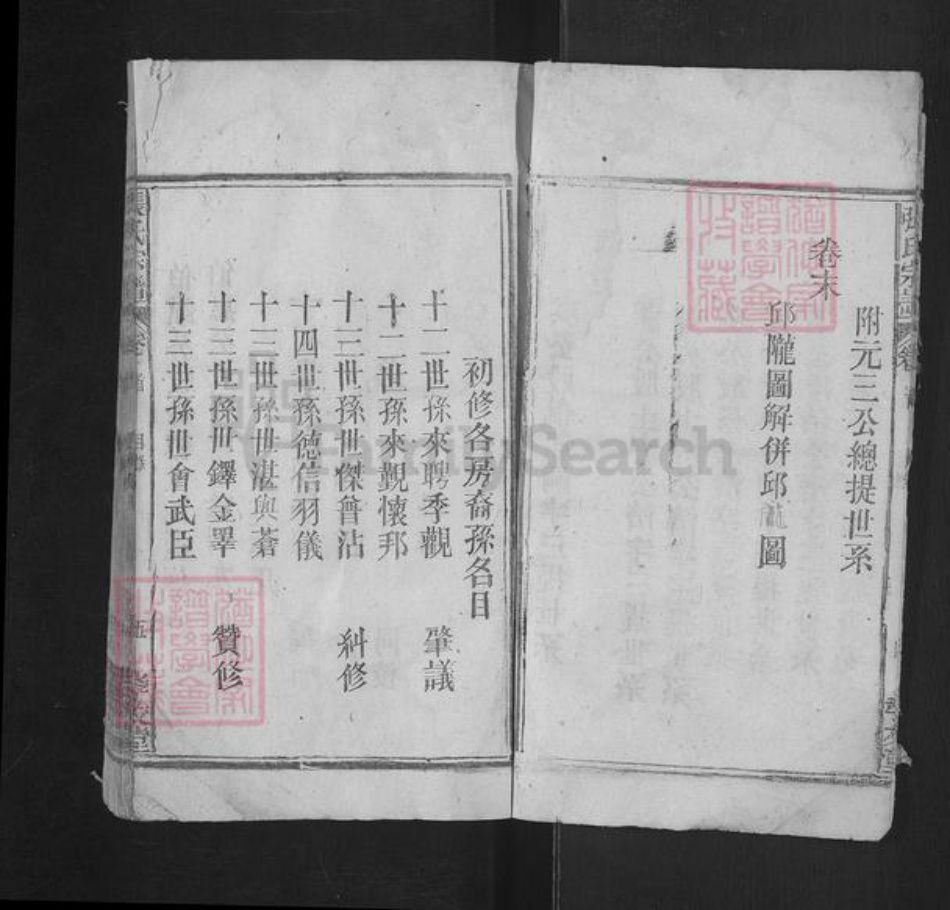 附元三公總提世系
卷末
邱隴圖解併邱隴圖
初修各房裔孫名目
十二世孫來聘季觀 肇議
十二世孫來觐懷邦
十三世孫世傑曾沾 糾修
十四世孫德信羽儀
十三世孫世湛與蒼
十三世孫世鐸金罩 贊修
十三世孫世會武臣
張氏宗譜
FamilySearch
譜學會
收藏